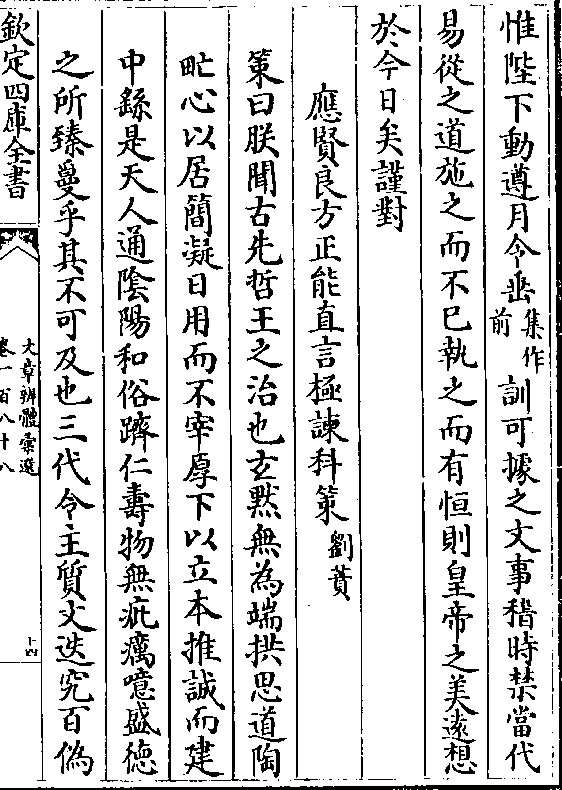 惟陛下動遵月令垂集作前訓可據之文事稽時禁當代
易從之道施之而不已執之而有恒則皇帝之美遠想
於今日矣謹對
應賢良方正能直言極諫科策劉蕡
策曰朕聞古先哲王之治也玄黙無為端拱思道陶
甿心以居簡凝日用而不宰厚下以立本推誠而建
中繇是天人通隂陽和俗躋仁壽物無疵癘噫盛德
之所臻敻乎其不可及也三代令主質文迭究百偽
欽定四庫全書
文章辨體彙選
卷一百八十八
十四